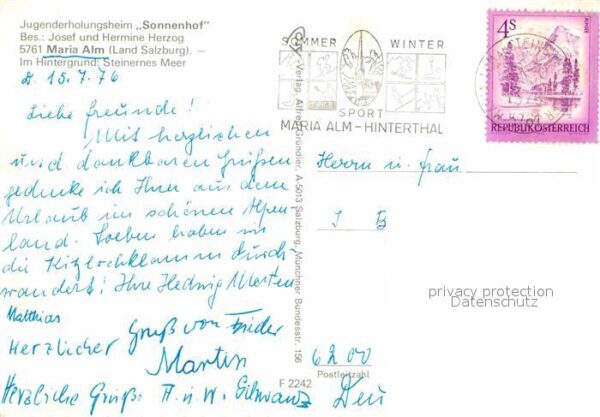 Jugenderholungsheim „Sonnenhof"
Bes.: Josef und Hermine Herzog
5761 Maria Alm (Land Salzburg). —
Im Hintergrund: Steinernes Meer
d. 15.7.76
Liebe Freunde!
Mit herzlichen
und dankbaren Grüßen
gedenke ich Ihrer aus dem
Urlaub im schönen Alpen-
land. Soeben haben wir
die Kitzlochklamm durch-
wandert! Ihre Hedwig
Matthias
Gruß von Frieder
Herzlicher
Martin
Herzliche Grüße H. u. W.
Verlag Alfred Gründler, A-5013 Salzburg, Münchner Bundesstr. 156
F 2242
SOMMER WINTER
SPORT
MARIA ALM - HINTERTHAL
4 S
REPUBLIK ÖSTERREICH
Herrn u. Frau
I B
privacy protection
Datenschutz
6200
Postleitzahl